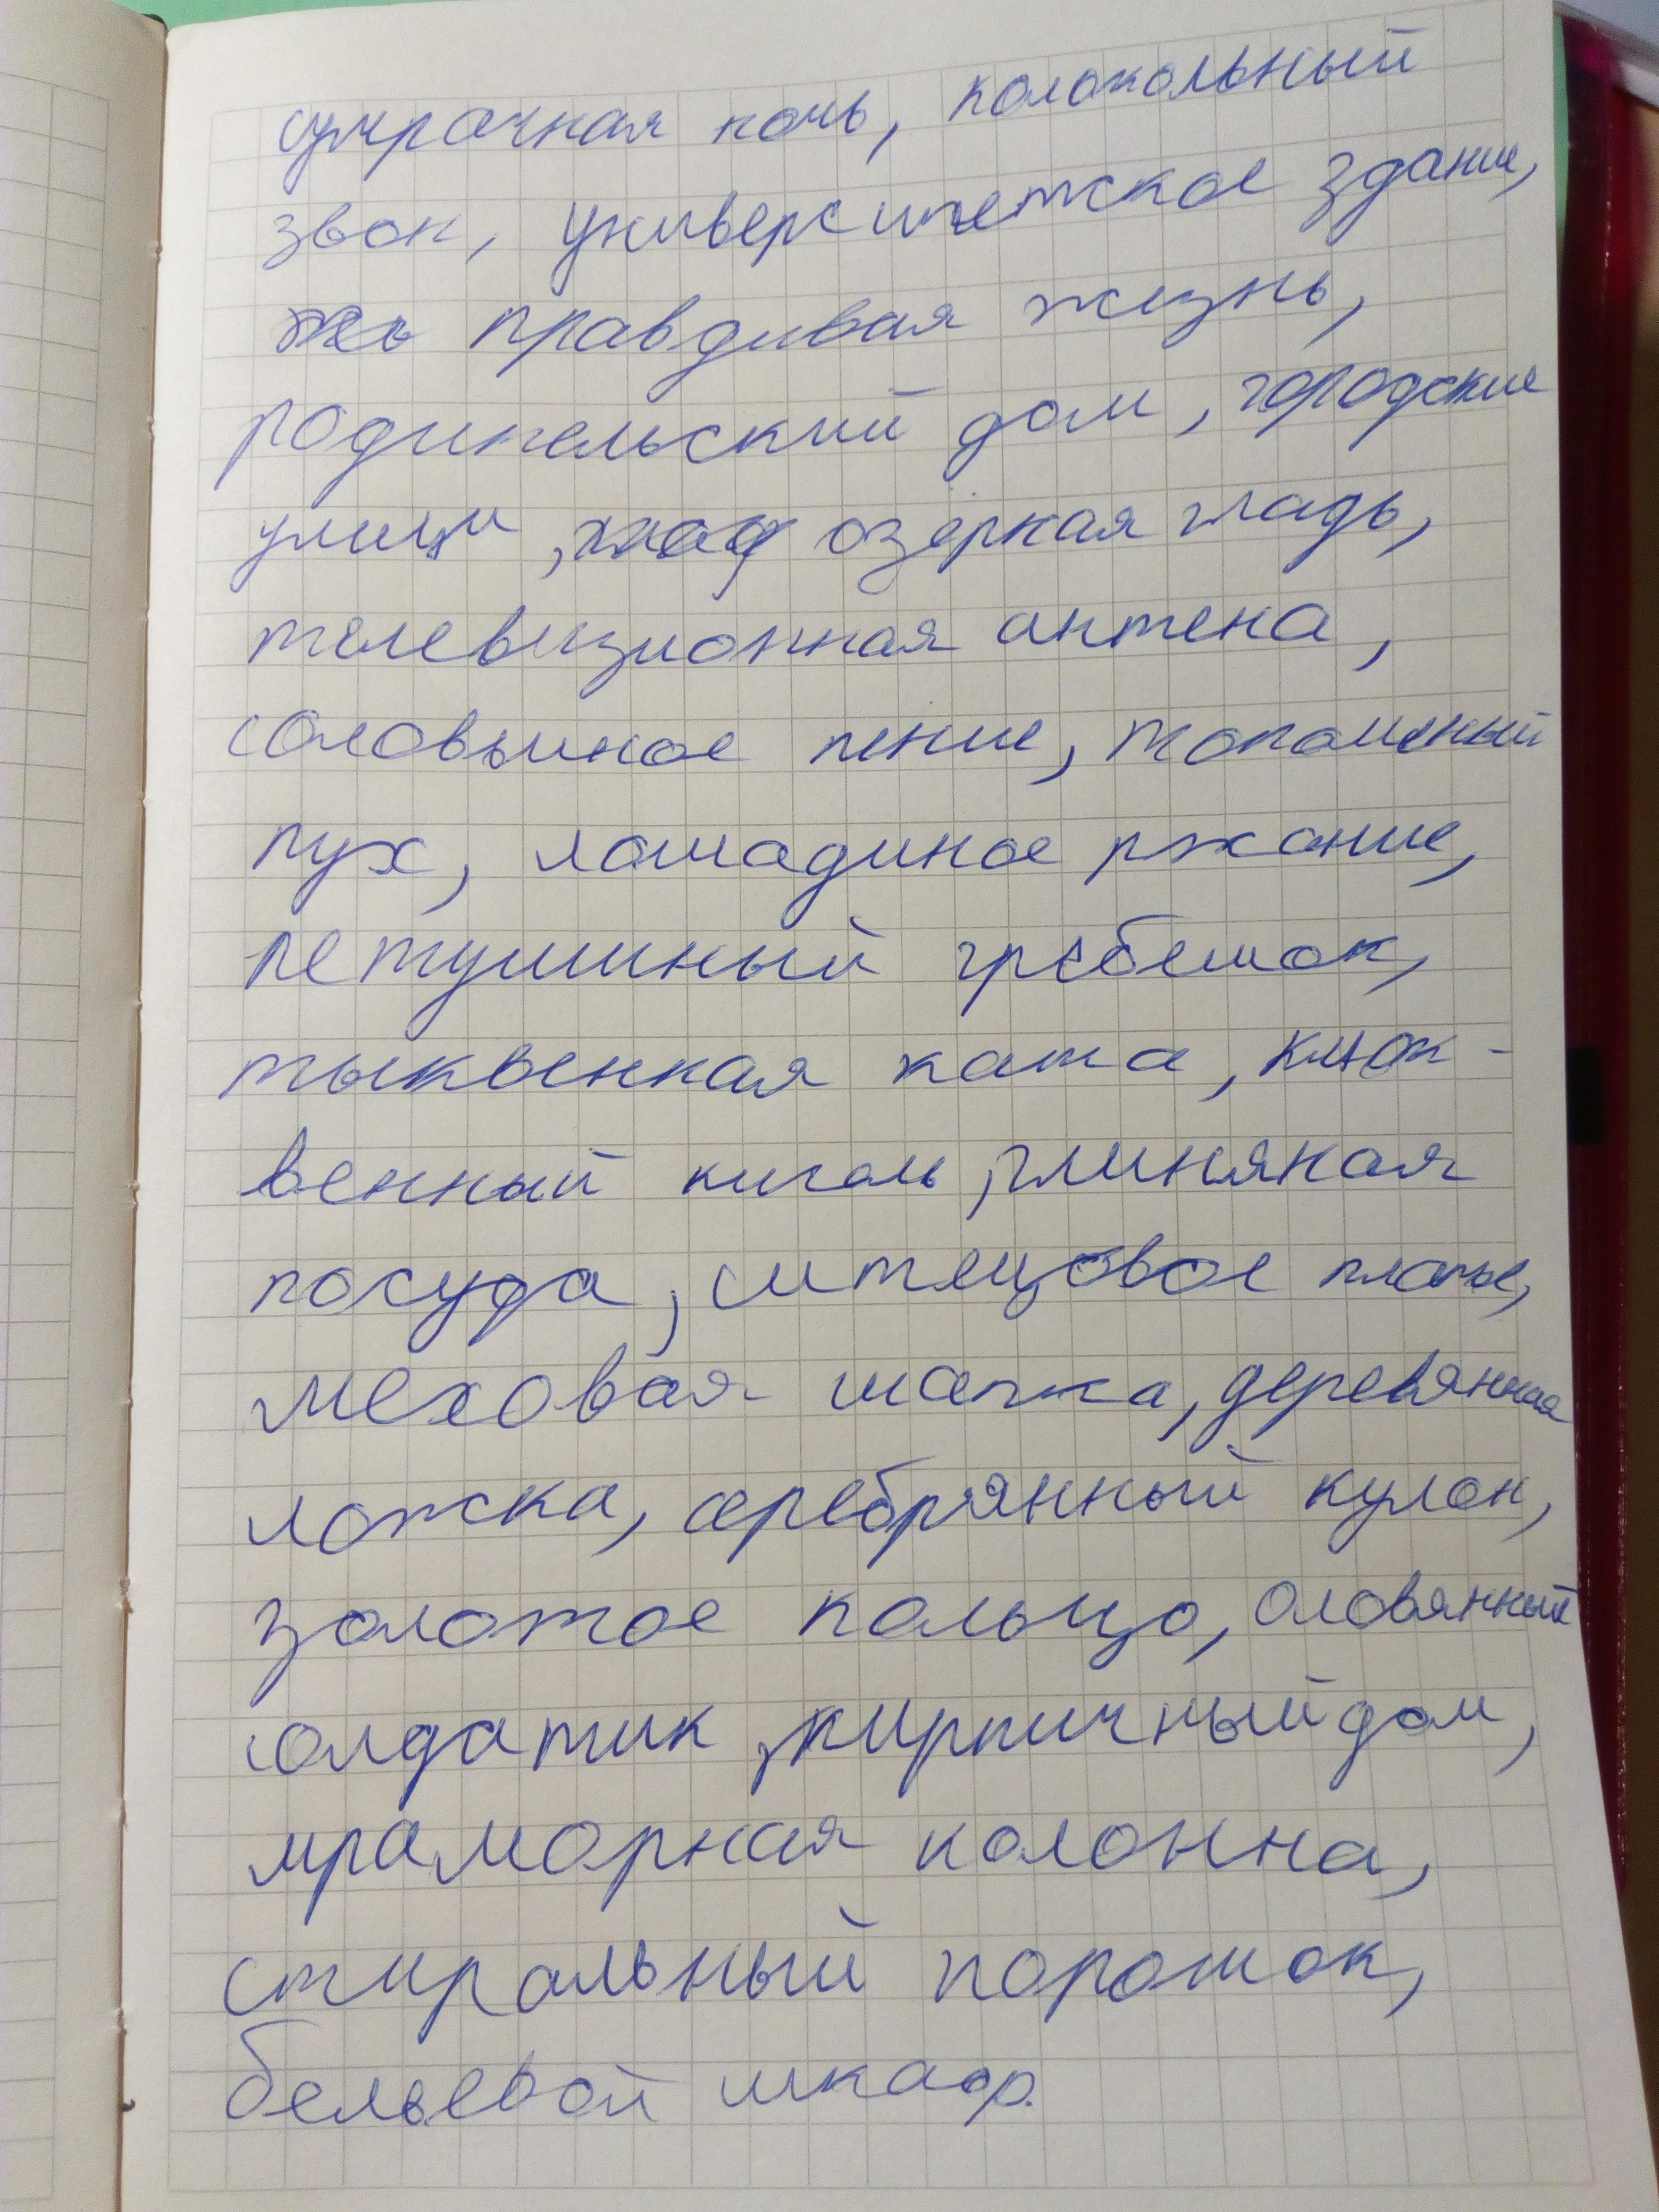 сумрачная ночь, колокольный
звон, университетское здание,
правдивая жизнь,
родительский дом, городские
улицы, озёркая гладь,
телевизионная антена,
соловьиное пение, тополиный
пух, лошадиное ржание,
петушиный гребешок,
тыквенная каша, клюк-
венный кисель, глиняная
посуда, ситецовое платье,
меховая шапка, деревянная
ложка, серебрянный кулон,
золотое кольцо, оловянный
солдатик, кирпичный дом,
мраморная колонна,
стиральный порошок,
бельевой шкаф.